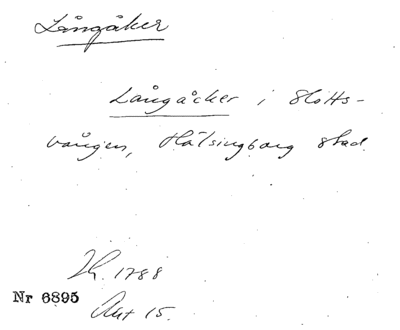 Långåker
Långåcker i Slotts-
vången, Hälsingborg stad.
Lh. 1788
Nr 6895
Akt 15.